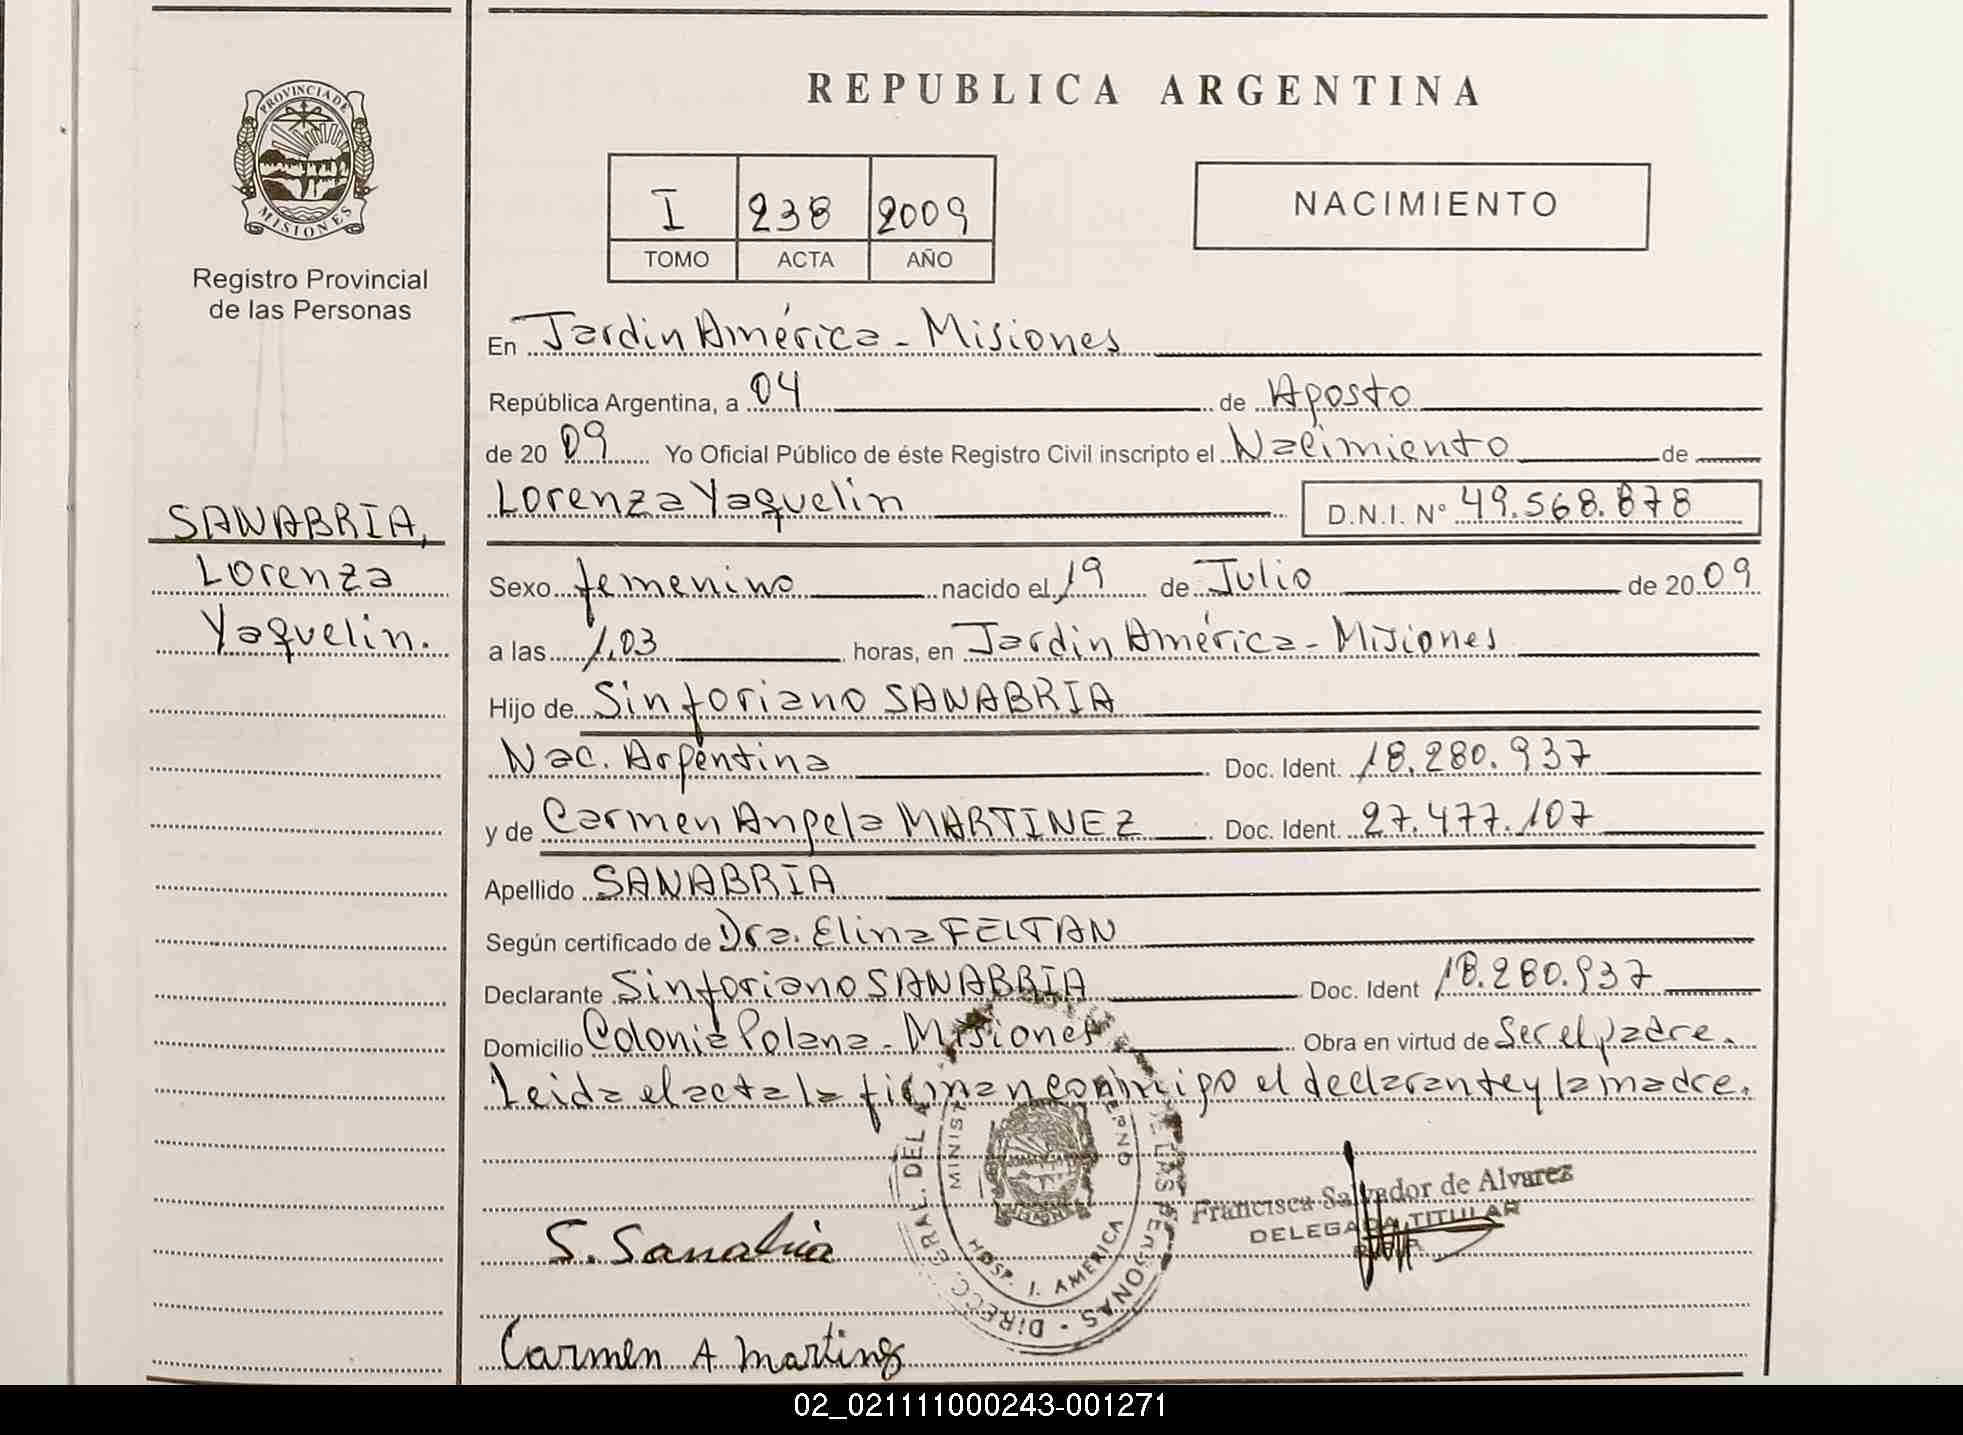 PROVINCIA DE
MISIONES
Registro Provincial
de las Personas
SANABRIA,
Lorenza
Yaquelin.
REPUBLICA ARGENTINA
I 238 2009
TOMO ACTA AÑO
NACIMIENTO
En Jardin América - Misiones
República Argentina, a 04 de Agosto
de 20 09 Yo Oficial Público de éste Registro Civil inscripto el Nacimiento de
Lorenza Yaquelin D.N.I. N° 49.568.878
Sexo femenino nacido el 19 de Julio de 20 09
a las 1,03 horas, en Jardin América - Misiones
Hijo de Sinforiano SANABRIA
Nac. Argentina Doc. Ident. 18.280.937
y de Carmen Angela MARTINEZ Doc. Ident. 27.477.107
Apellido SANABRIA
Según certificado de Dra. Elina FELTAN
Declarante Sinforiano SANABRIA Doc. Ident 18.280.937
Domicilio Colonia Polana - Misiones Obra en virtud de Ser el padre.
Leida el acta la firman conmigo el declarante y la madre.
DIRECC. GRAL. DEL DE LAS PERSONAS
HOSP. J. AMERICA
Francisca Salvador de Alvarez
DELEGADA TITULAR
S. Sanabria
Carmen A Martinez
02_021111000243-001271